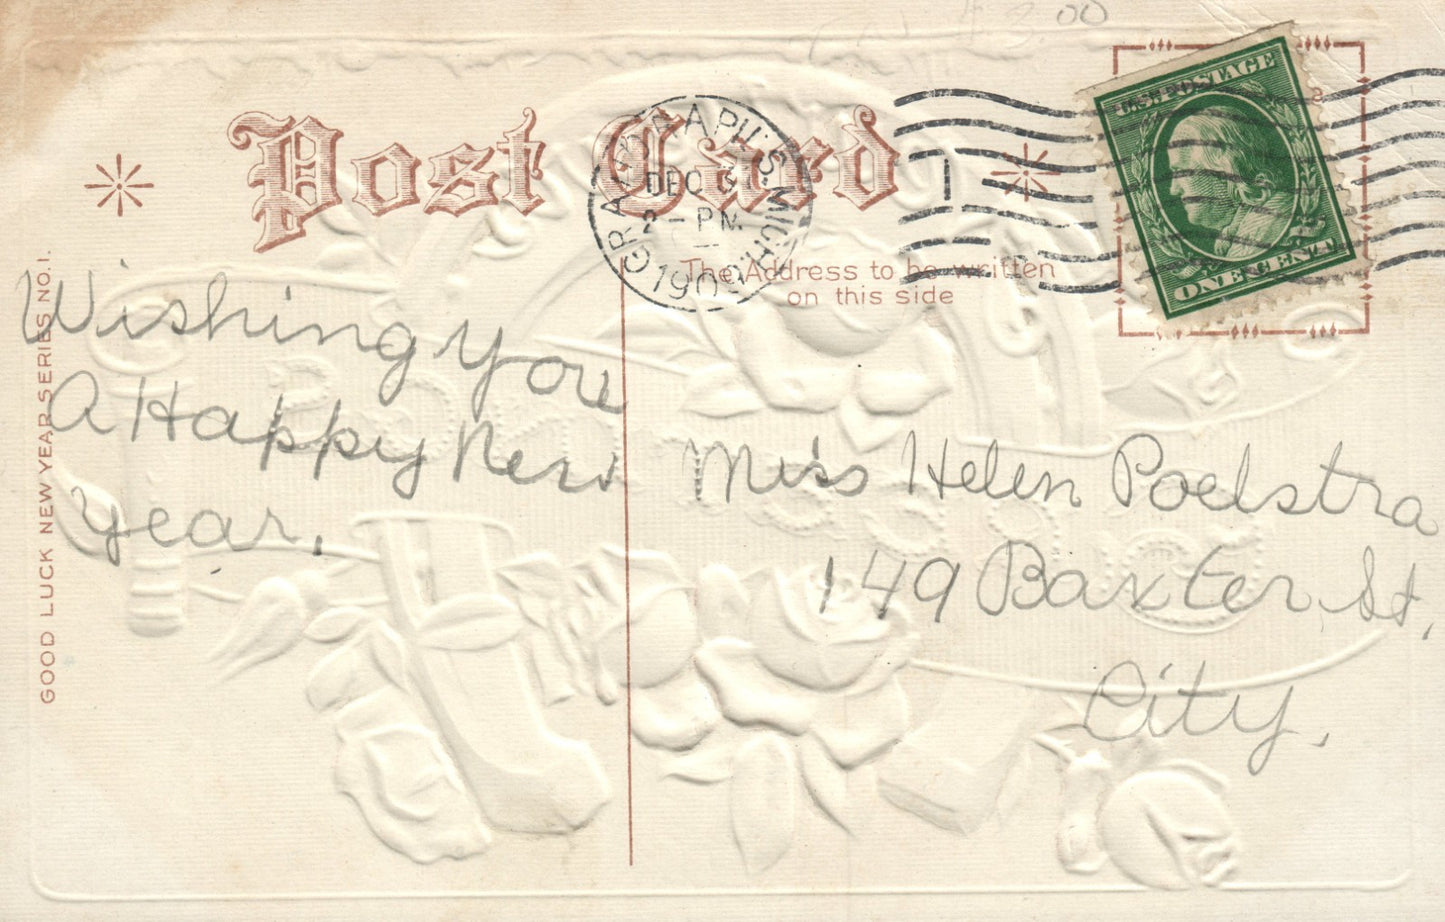 .00
Post Card
GRAND RAPIDS, MICH.
DEC 31
2 - PM
1909
U.S. POSTAGE
ONE CENT
The Address to be written
on this side
GOOD LUCK NEW YEAR SERIES NO. 1.
Wishing you
A Happy New
Year.
Miss Helen Poelstra
149 Baxter St,
City,